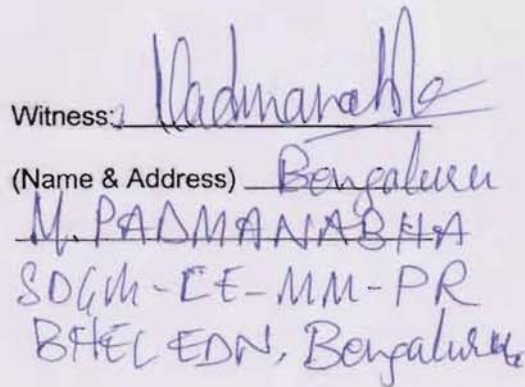 Witness: Padmanabha
(Name & Address) Bengaluru
M. PADMANABHA
SDGM-CE-MM-PR
BHEL EDN, Bengaluru.